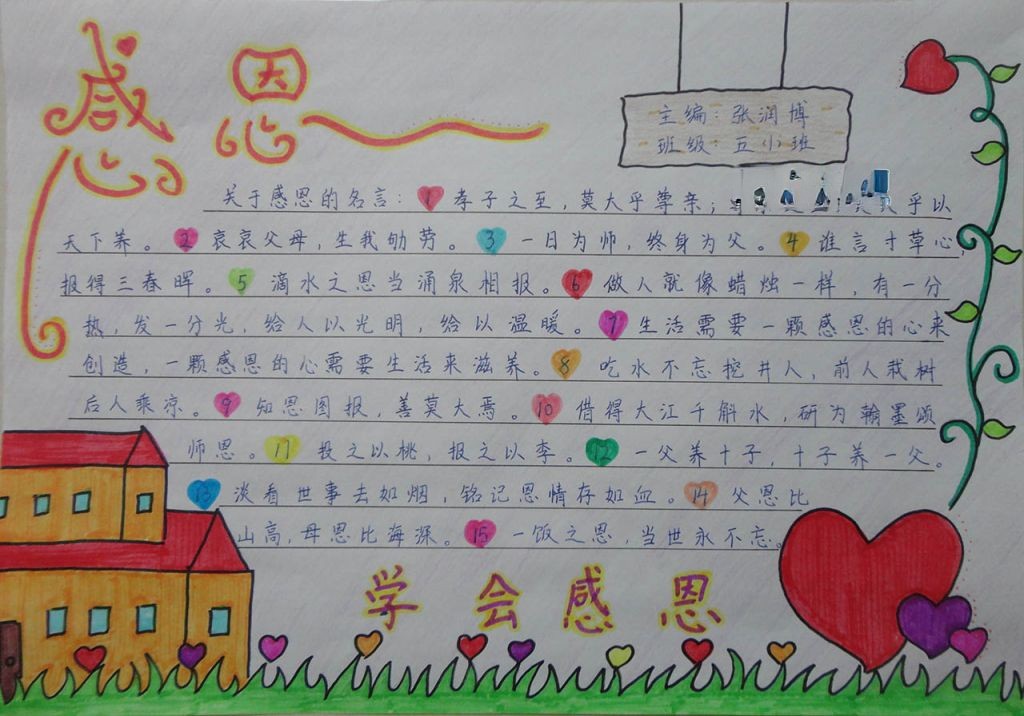 感恩
主编：张润博
班级：五小班
关于感恩的名言：1 孝子之至，莫大乎尊亲；乎以
天下养。2 哀哀父母，生我劬劳。3 一日为师，终身为父。4 谁言寸草心，
报得三春晖。5 滴水之恩当涌泉相报。6 做人就像蜡烛一样，有一分
热，发一分光，给人以光明，给以温暖。7 生活需要一颗感恩的心来
创造，一颗感恩的心需要生活来滋养。8 吃水不忘挖井人，前人栽树
后人乘凉。9 知恩图报，善莫大焉。10 借得大江千斛水，研为翰墨颂
师恩。11 投之以桃，报之以李。12 一父养十子，十子养一父。
13 淡看世事去如烟，铭记恩情存如血。14 父恩比
山高，母恩比海深。15 一饭之恩，当世永不忘。
学会感恩